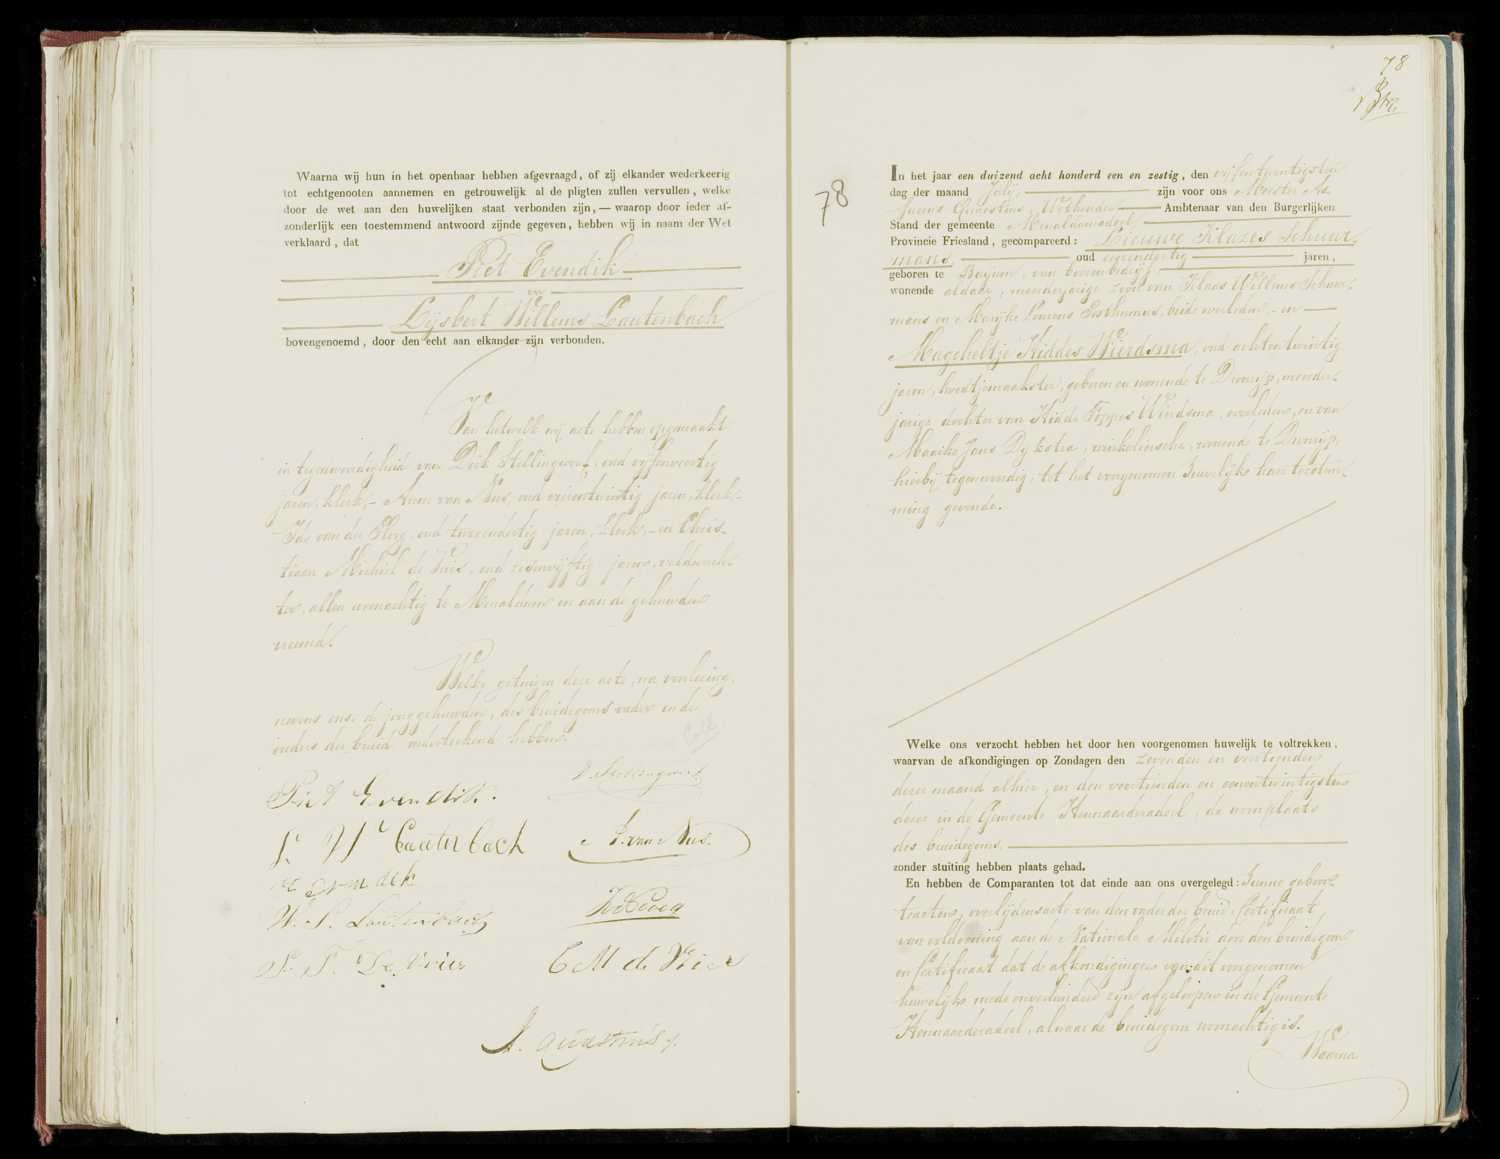 Waarna wij hun in het openbaar hebben afgevraagd, of zij elkander wederkeerig
tot echtgenooten aannemen en getrouwelijk al de pligten zullen vervullen, welke
door de wet aan den huwelijken staat verbonden zijn, — waarop door ieder af-
zonderlijk een toestemmend antwoord zijnde gegeven, hebben wij in naam der Wet
verklaard, dat
Piet Evendik
en
Lijsbert Willems Lautenbach
bovengenoemd, door den echt aan elkander zijn verbonden.
Van hetwelk wij acte hebben opgemaakt
in tegenwoordigheid van Dirk Stellingwerf, oud vijfenveertig
jaren, klerk, – Anne van Nus, oud vierentwintig jaren, klerk,-
Ids van der Ploeg, oud tweeendertig jaren, klerk, – en Chris-
tiaan Michiel de Vries, oud zesenvijftig jaren, veldwach-
ter, allen woonachtig te Menaldum en aan de gehuwden
vreemd.
Welke getuigen deze acte, na voorlezing,
nevens ons, de jonggehuwden, des bruidegoms vader en de
ouders der bruid, onderteekend hebben.
Piet Evendik.
D. Stellingwerf
L. W. Lautenbach
A. van Nus.
Evendik
W. S. Lautenbach
S. T. De Vries
C M de Vries
J. Quæstius
78
78
In het jaar een duizend acht honderd een en zestig, den vijfentwintigsten
dag der maand Julij zijn voor ons Meester As-
suerus Quæstius, Wethouder Ambtenaar van den Burgerlijken
Stand der gemeente Menaldumadeel
Provincie Friesland, gecompareerd: Lieuwe Klazes Schuur-
mans oud eenendertig jaren,
geboren te Baijum, van beroep
wonende aldaar, meerderjarige zoon van Klaas Willems Schuur-
mans en Marijke Louwes Posthumus, beide overleden, – en
Mageheltje Kiddes Wierdsma, oud achtentwintig
jaren, geboren en wonende te Dronrijp, meerder-
jarige dochter van Kidde Foppes Wierdsma, overleden, en van
Maaike Jans Dijkstra, winkeliersche, wonende te Dronrijp,
hierbij tegenwoordig, tot het voorgenomen huwelijk hare toestem-
ming gevende.
Welke ons verzocht hebben het door hen voorgenomen huwelijk te voltrekken,
waarvan de afkondigingen op Zondagen den zevenden en veertienden
dezer maand alhier, en den veertienden en eenentwintigsten
dezer in de Gemeente Hennaarderadeel, de woonplaats
des bruidegoms,
zonder stuiting hebben plaats gehad.
En hebben de Comparanten tot dat einde aan ons overgelegd: Hunne geboor-
teacten, overlijdensacte van den vader der bruid, certificaat
van voldoening aan de Nationale Militie door den bruidegom
en Certificaat dat de afkondigingen van dit voorgenomen
huwelijk mede onverhinderd zijn afgeloopen in de Gemeente
Hennaarderadeel, alwaar de bruidegom woonachtig is.
Waarna